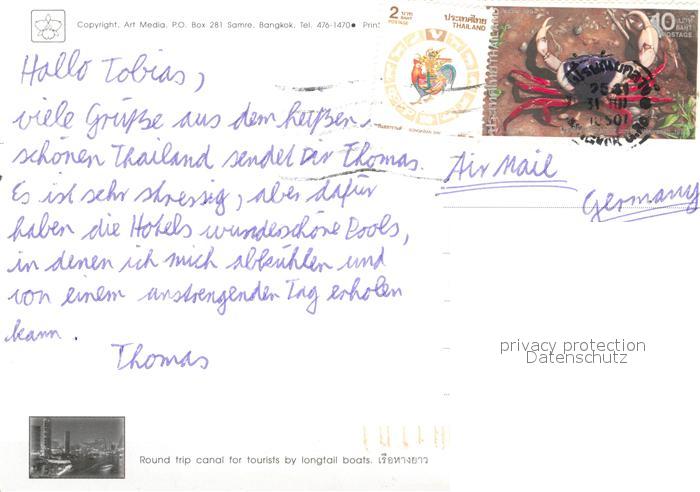 Copyright, Art Media, P.O. Box 281 Samre, Bangkok. Tel. 476-1470 Prin
Hallo Tobias,
viele Grüße aus dem heißen
schönen Thailand sendet Dir Thomas.
Es ist sehr stressig, aber dafür
haben die Hotels wunderschöne Pools,
in denen ich mich abkühlen und
von einem anstrengenden Tag erholen
kann.
Thomas
2 บาท
BAHT
POSTAGE
ประเทศไทย
THAILAND
10 บาท
BAHT
POSTAGE
Air Mail
Germany
privacy protection
Datenschutz
Round trip canal for tourists by longtail boats. เรือหางยาว